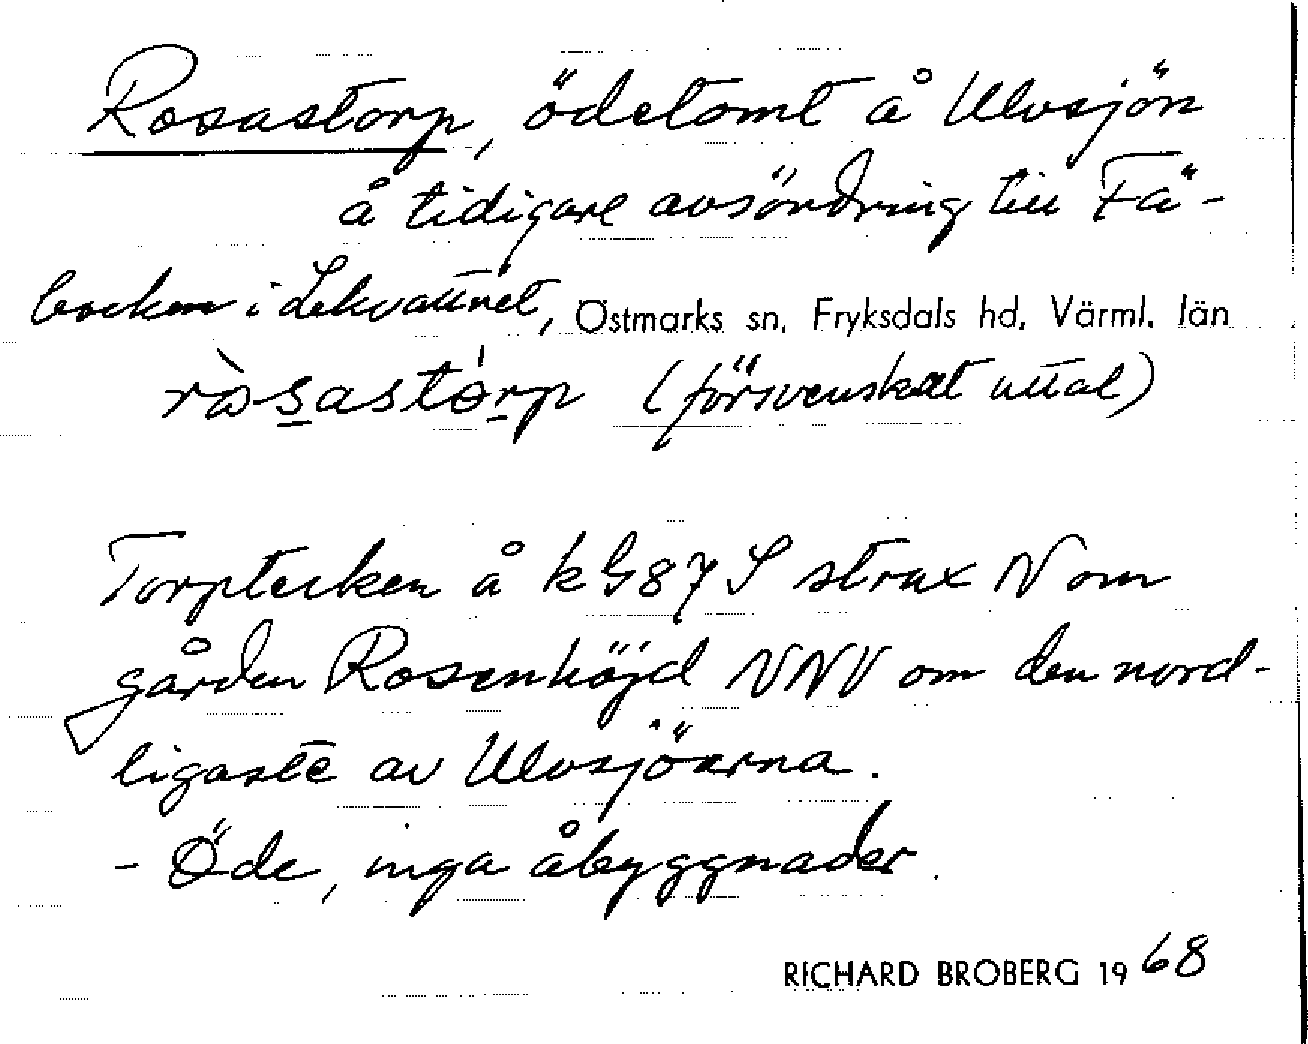 Rosastorp, ödetomt å Ulvsjön
å tidigare avsöndring till Fä-
backen i Lekvattnet, Östmarks sn, Fryksdals hd, Värml. län
rò̀sastò́rp (försvenskat uttal)
Torptecken å kG87 S strax N om
gården Rosenhöjd NNV om den nord-
ligaste av Ulvsjöarna.
- Öde, inga åbyggnader.
RICHARD BROBERG 1968